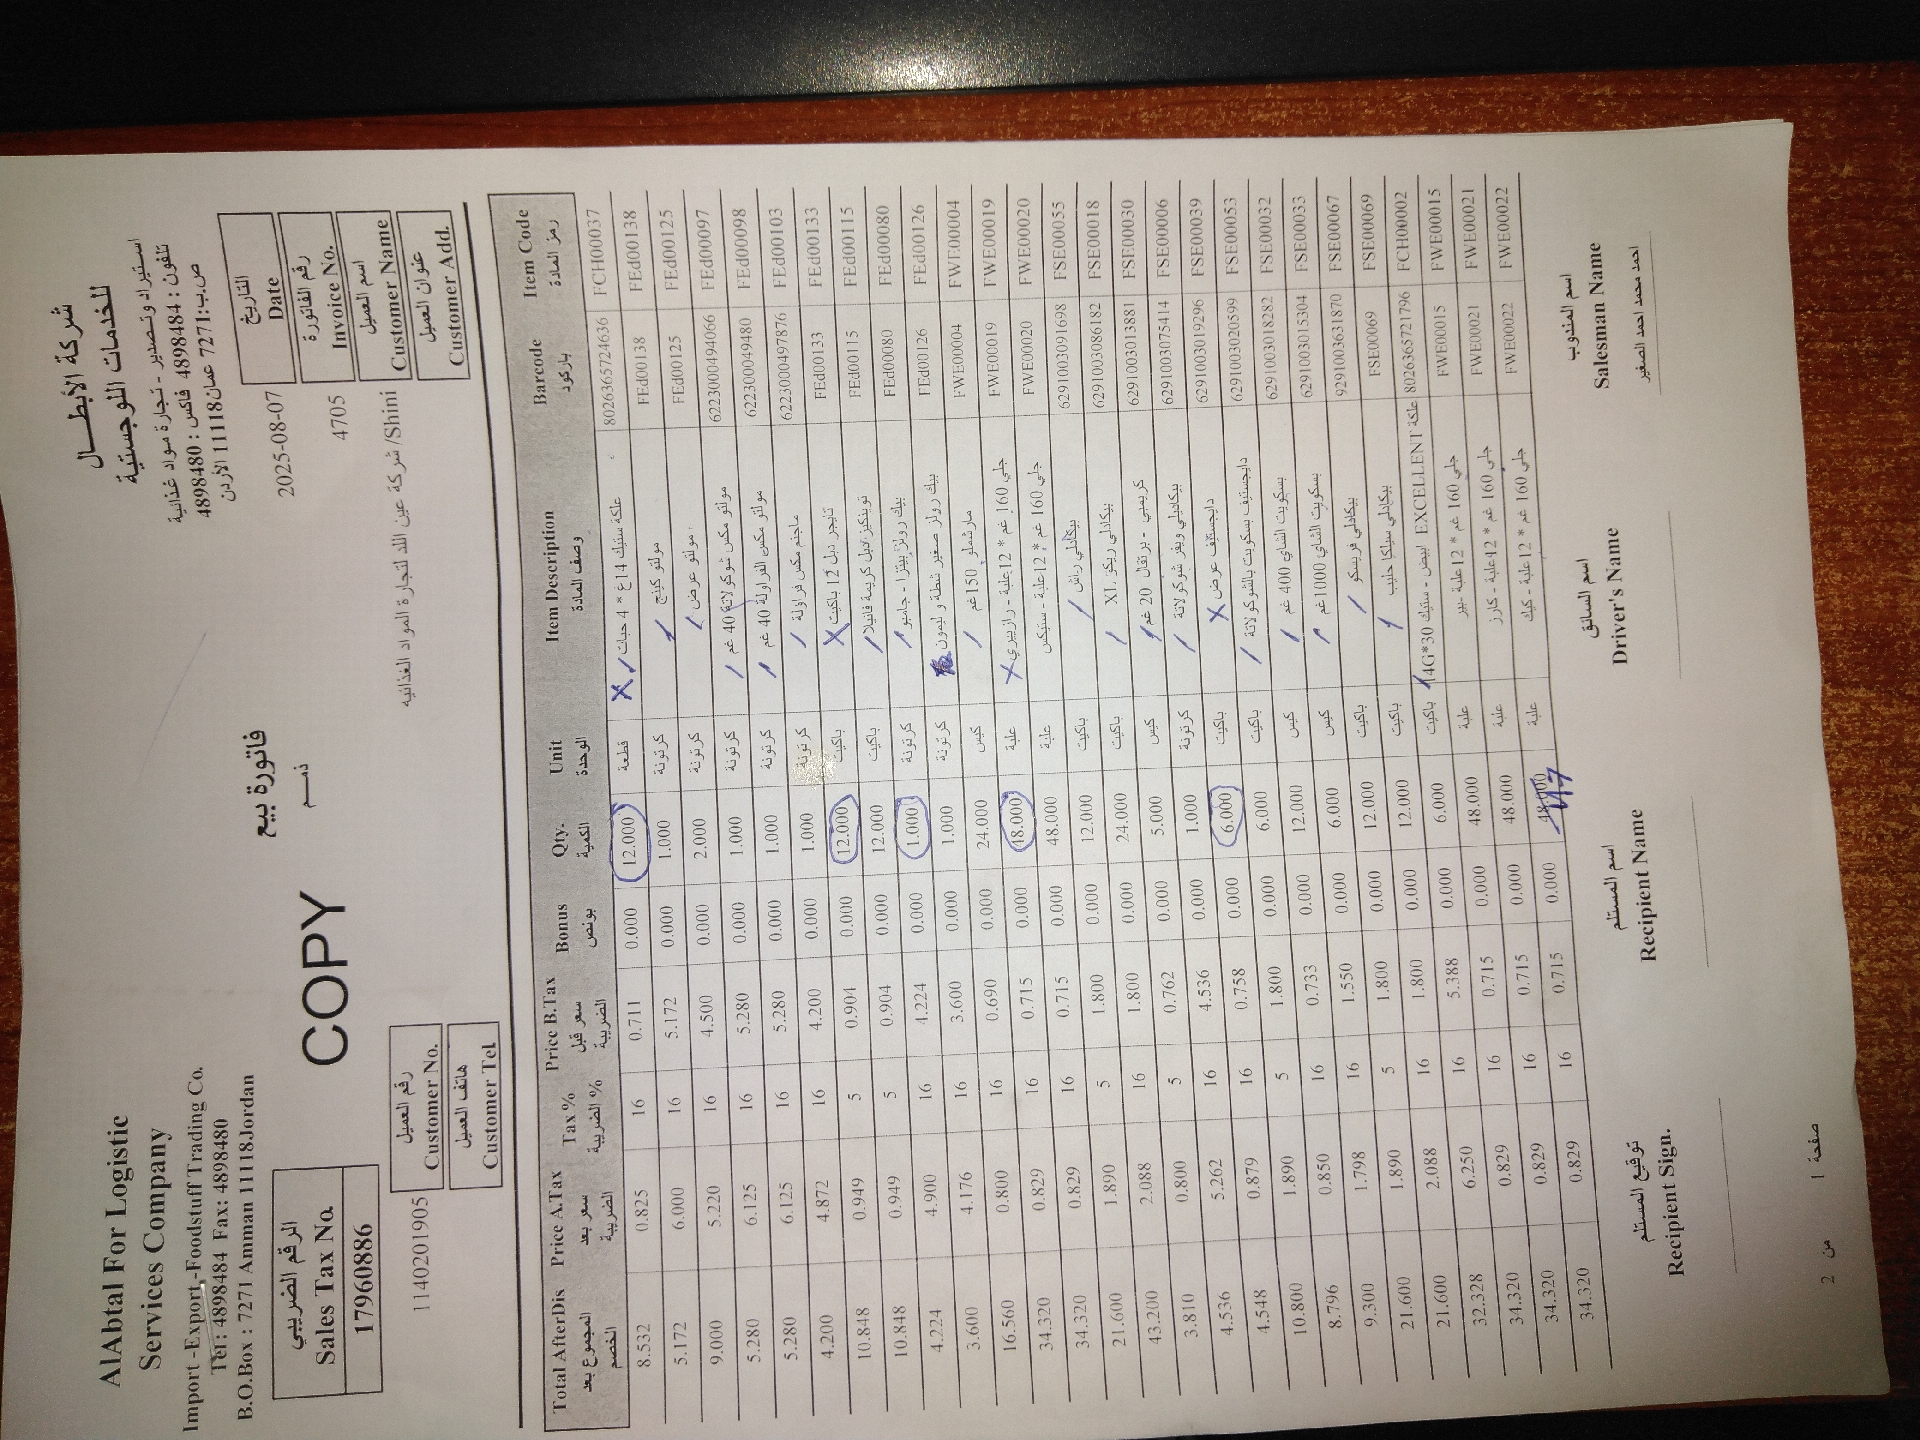 AlAbtal For Logistic
Services Company
Import -Export -Foodstuff Trading Co.
Tel: 4898484 Fax: 4898480
B.O.Box : 7271 Amman 11118Jordan
شركة الأبطــــال
للخدمات اللوجستية
استيراد وتصدير - تجارة مواد غذائية
تلفون : 4898484 فاكس : 4898480
ص.ب:7271 عمان11118 الأردن
الرقم الضريبي
Sales Tax No.
17960886
فاتورة بيع
ذمم
COPY
التاريخ
Date
2025-08-07
رقم الفاتورة
Invoice No.
4705
اسم العميل
Customer Name
شركة عين اللد لتجارة المواد الغذائيه /Shini
عنوان العميل
Customer Add.
رقم العميل
Customer No.
1140201905
هاتف العميل
Customer Tel.
Total AfterDis Price A.Tax Tax % Price B.Tax Bonus Qty. Unit Item Description Barcode Item Code
المجموع بعد الخصم سعر بعد الضريبة الضريبة % سعر قبل الضريبة بونص الكمية الوحدة وصف المادة باركود رمز المادة
8.532 0.825 16 0.711 0.000 12.000 قطعة علكة ستيك 14غ * 4 حبات 8026365724636 FCH00037
5.172 6.000 16 5.172 0.000 1.000 كرتونة مولتو كينج FEd00138 FEd00138
9.000 5.220 16 4.500 0.000 2.000 كرتونة مولتو عرض FEd00125 FEd00125
5.280 6.125 16 5.280 0.000 1.000 كرتونة مولتو مكس شوكولاتة 40 غم 6223000494066 FEd00097
5.280 6.125 16 5.280 0.000 1.000 كرتونة مولتو مكس الفراولة 40 غم 6223000494080 FEd00098
4.200 4.872 16 4.200 0.000 1.000 كرتونة ماجنم مكس فراولة 6223000497876 FEd00103
10.848 0.949 5 0.904 0.000 12.000 باكيت تايجر دبل 12 باكيت FEd00133 FEd00133
10.848 0.949 5 0.904 0.000 12.000 باكيت توينكيز دبل كريمة فانيلا FEd00115 FEd00115
4.224 4.900 16 4.224 0.000 1.000 كرتونة بيك رولز بيتزا - جامبو FEd00080 FEd00080
3.600 4.176 16 3.600 0.000 1.000 كرتونة بيك رولز صغير شطة و ليمون FEd00126 FEd00126
16.560 0.800 16 0.690 0.000 24.000 كيس مارشملو 150غم FWE000004 FWE00004
34.320 0.829 16 0.715 0.000 48.000 علبة جلي 160 غم * 12علبة - رازبيري FWE00019 FWE00019
34.320 0.829 16 0.715 0.000 48.000 علبة جلي 160 غم * 12علبة - ستيكس FWE00020 FWE00020
21.600 1.890 5 1.800 0.000 12.000 باكيت بيكادلي راش 6291003091698 FSE00055
43.200 2.088 16 1.800 0.000 24.000 باكيت بيكادلي ريكو XL 6291003086182 FSE00018
3.810 0.800 5 0.762 0.000 5.000 كيس كريمبي - برتقال 20 غم 6291003013881 FSE00030
4.536 5.262 16 4.536 0.000 1.000 كرتونة بيكاديلي ويفر شوكولاتة 6291003075414 FSE00006
4.548 0.879 16 0.758 0.000 6.000 باكيت دايجستيف عرض 6291003019296 FSE00039
10.800 1.890 5 1.800 0.000 6.000 باكيت دايجستيف بسكويت بالشوكولاتة 6291003020599 FSE00053
8.796 0.850 16 0.733 0.000 12.000 كيس بسكويت الشاي 400 غم 6291003018282 FSE00032
9.300 1.798 16 1.550 0.000 6.000 كيس بسكويت الشاي 1000غم 6291003015304 FSE00033
21.600 1.890 5 1.800 0.000 12.000 باكيت بيكادلي فريسكو 9291003631870 FSE00067
21.600 2.088 16 1.800 0.000 12.000 باكيت بيكادلي سيلكا حليب FSE00069 FSE00069
32.328 6.250 16 5.388 0.000 6.000 باكيت علكة EXCELLENT ابيض - ستيك 30*14G 8026365721796 FCH00002
34.320 0.829 16 0.715 0.000 48.000 علبة جلي 160 غم * 12علبة -بير FWE00015 FWE00015
34.320 0.829 16 0.715 0.000 48.000 علبة جلي 160 غم * 12علبة - كارز FWE00021 FWE00021
34.320 0.829 16 0.715 0.000 48.000 علبة جلي 160 غم * 12علبة - كيك FWE00022 FWE00022
47
توقيع المستلم
Recipient Sign.
اسم المستلم
Recipient Name
اسم السائق
Driver's Name
اسم المندوب
Salesman Name
احمد محمد احمد الصغير
صفحة 1 من 2